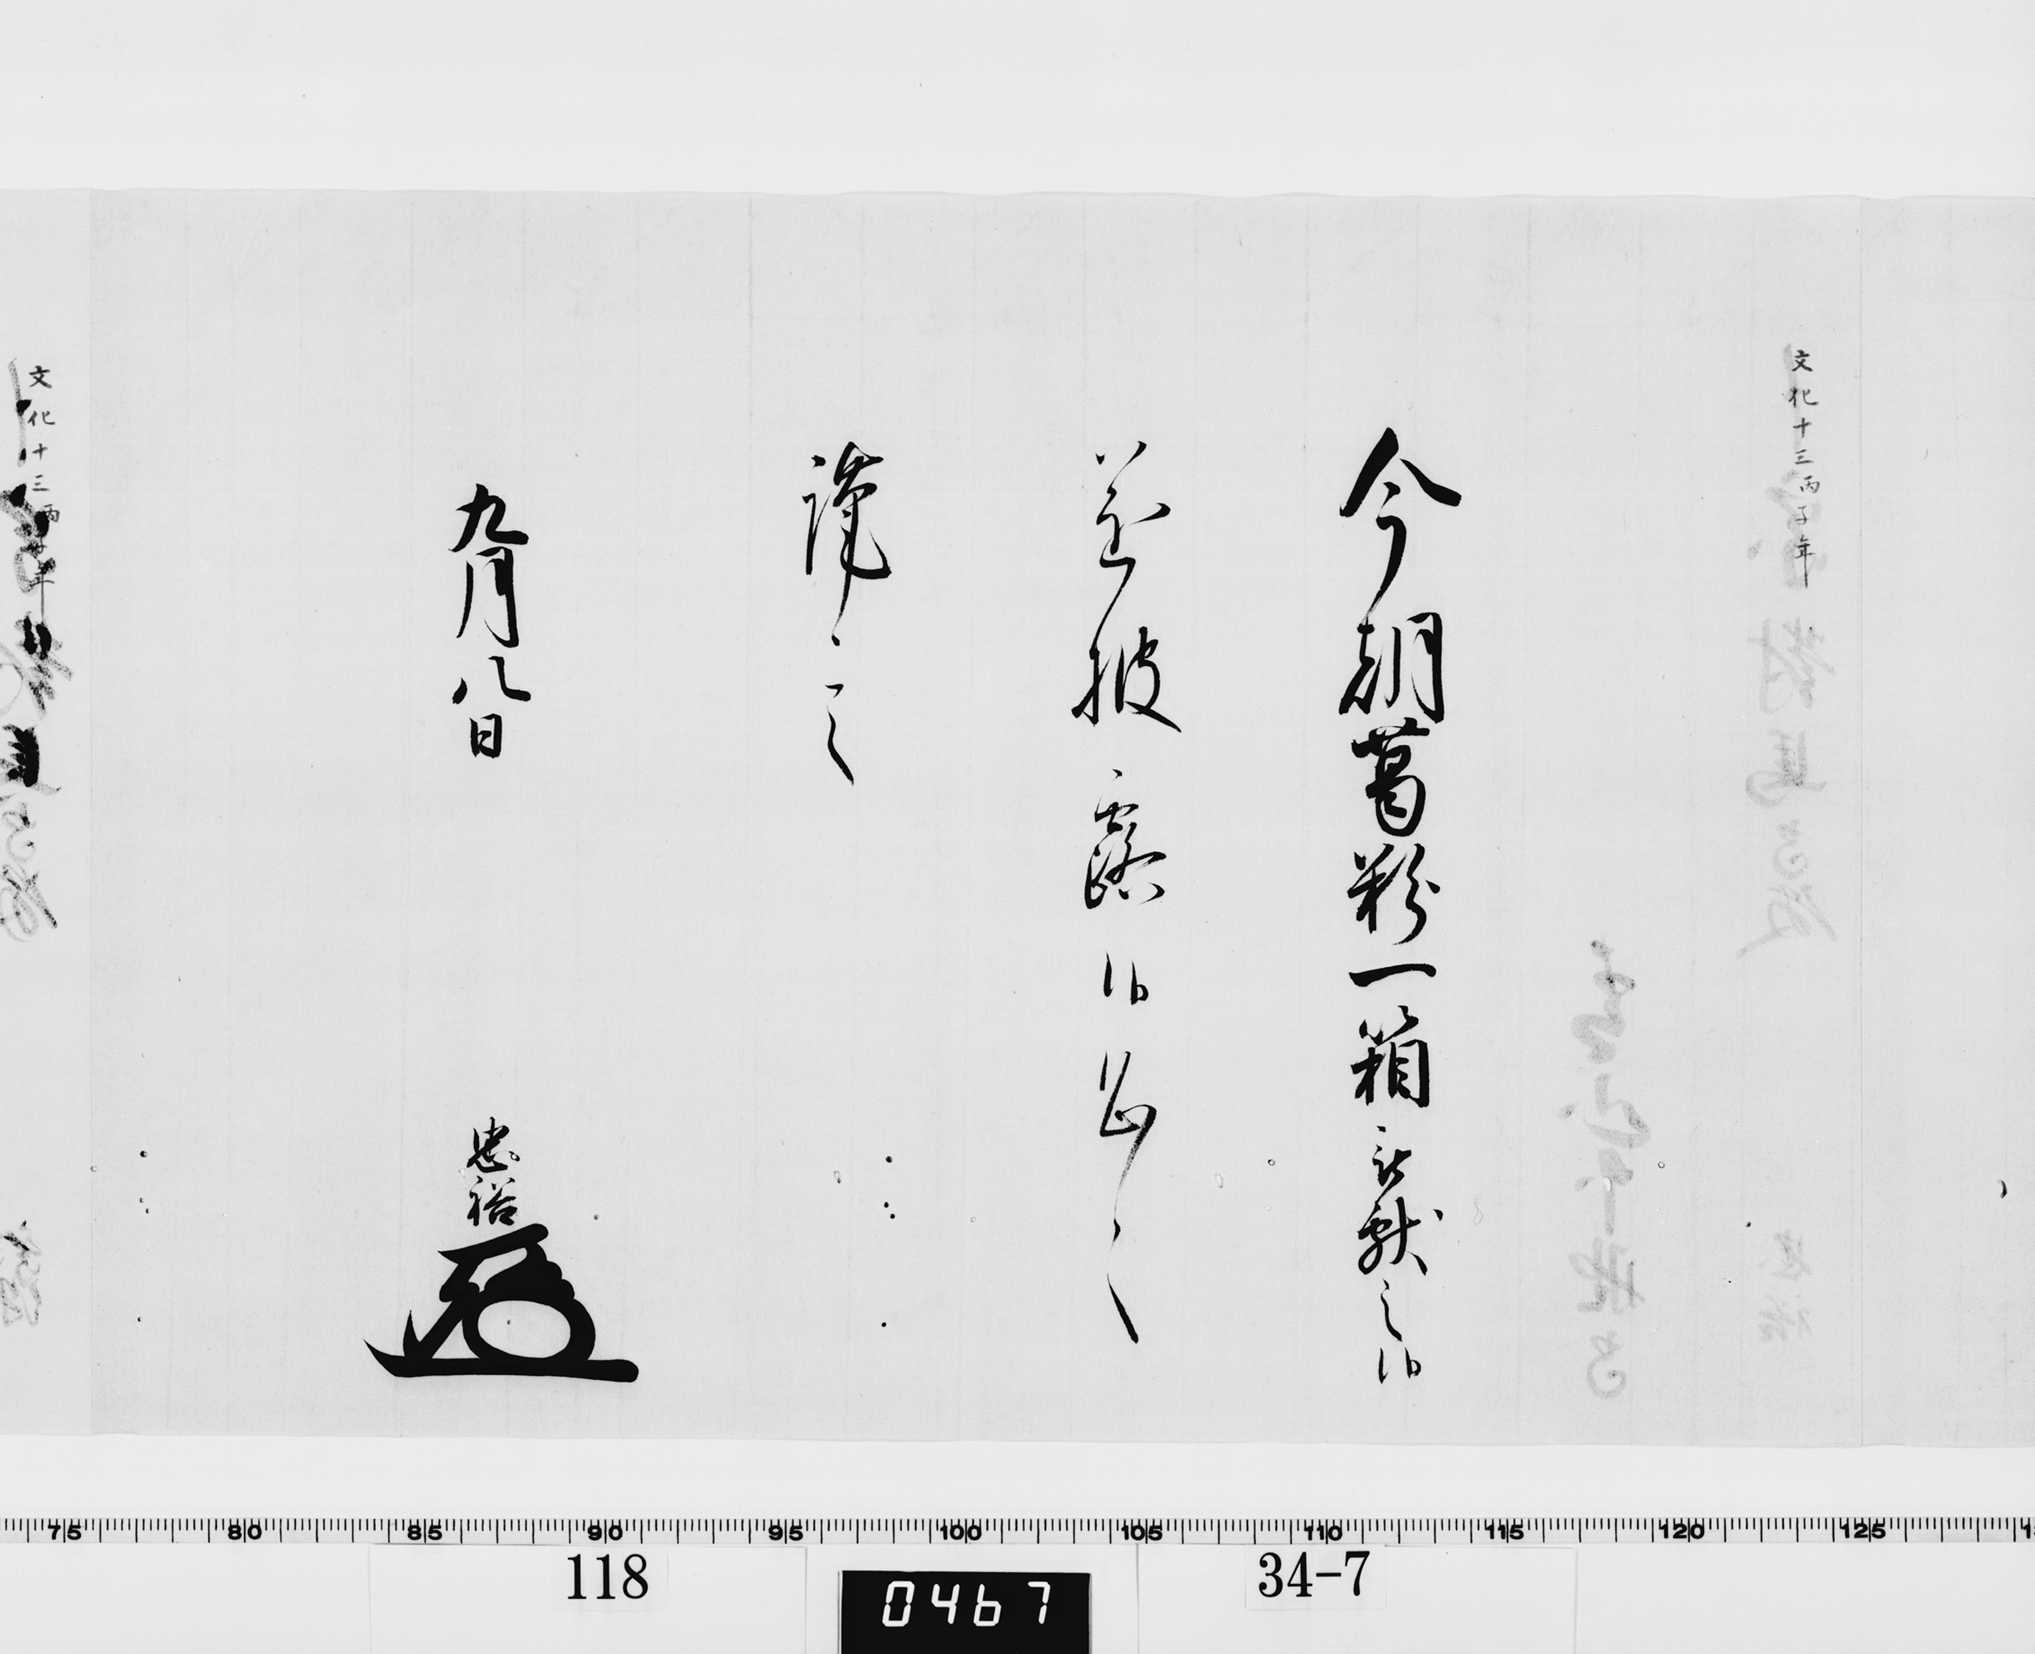 文化十三丙子年
今朝葛粉一箱被献之候
遂披露候恐々
謹言
九月八日
忠裕
文化十三丙子年
75 80 85 90 95 100 105 110 115 120 125
118
0467
34-7